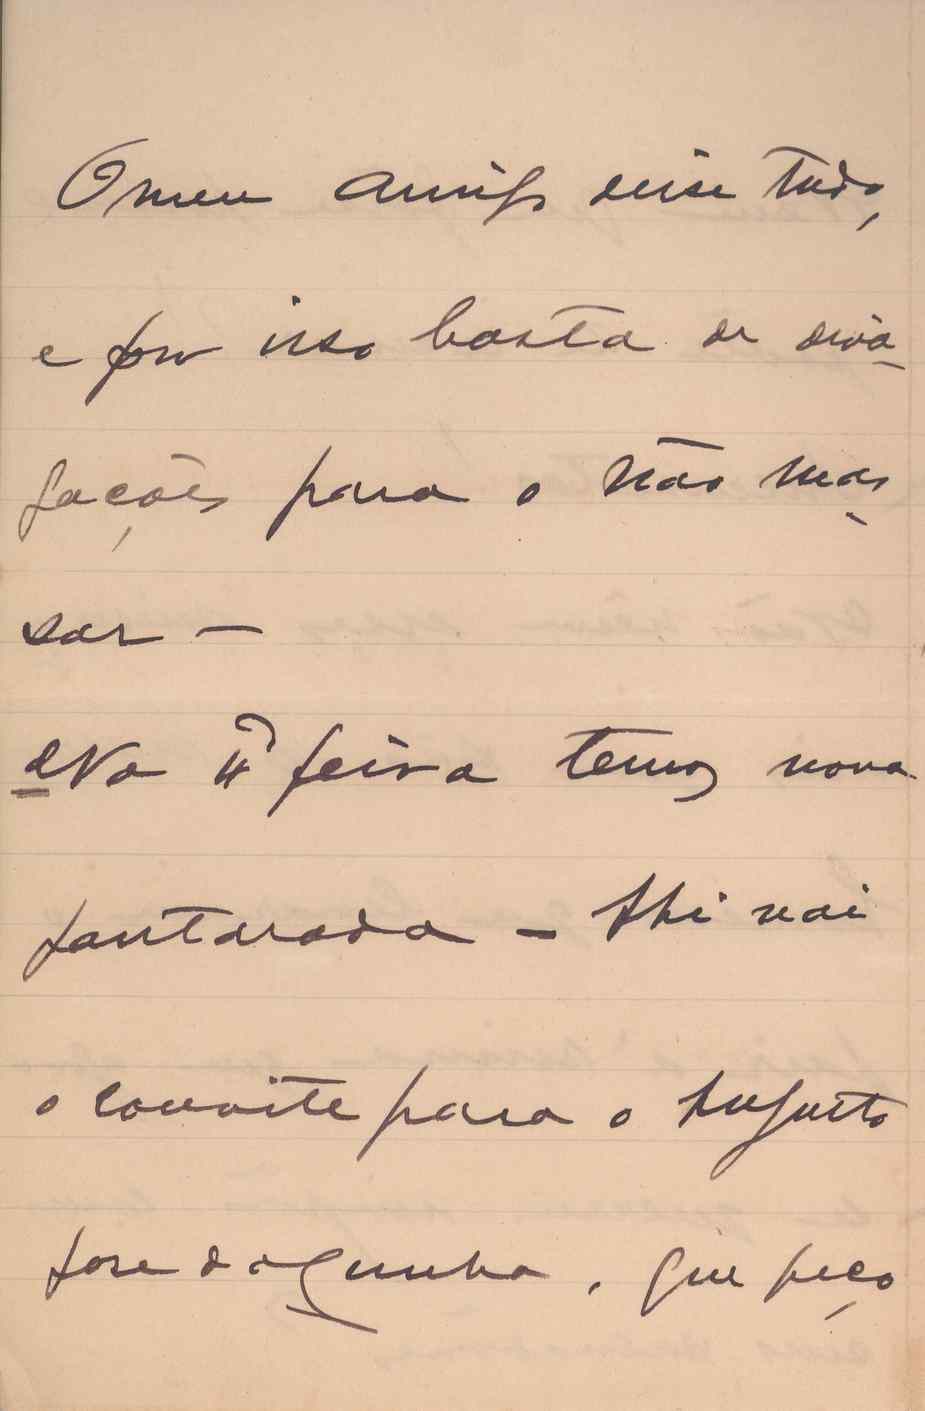 O meu amigo disse tudo,
e por isso basta de diva-
gações para o não mas-
sar —
Na 4ª feira temos nova
jantarada — Ahi vai
o convite para o Augusto
José da Cunha, que peço